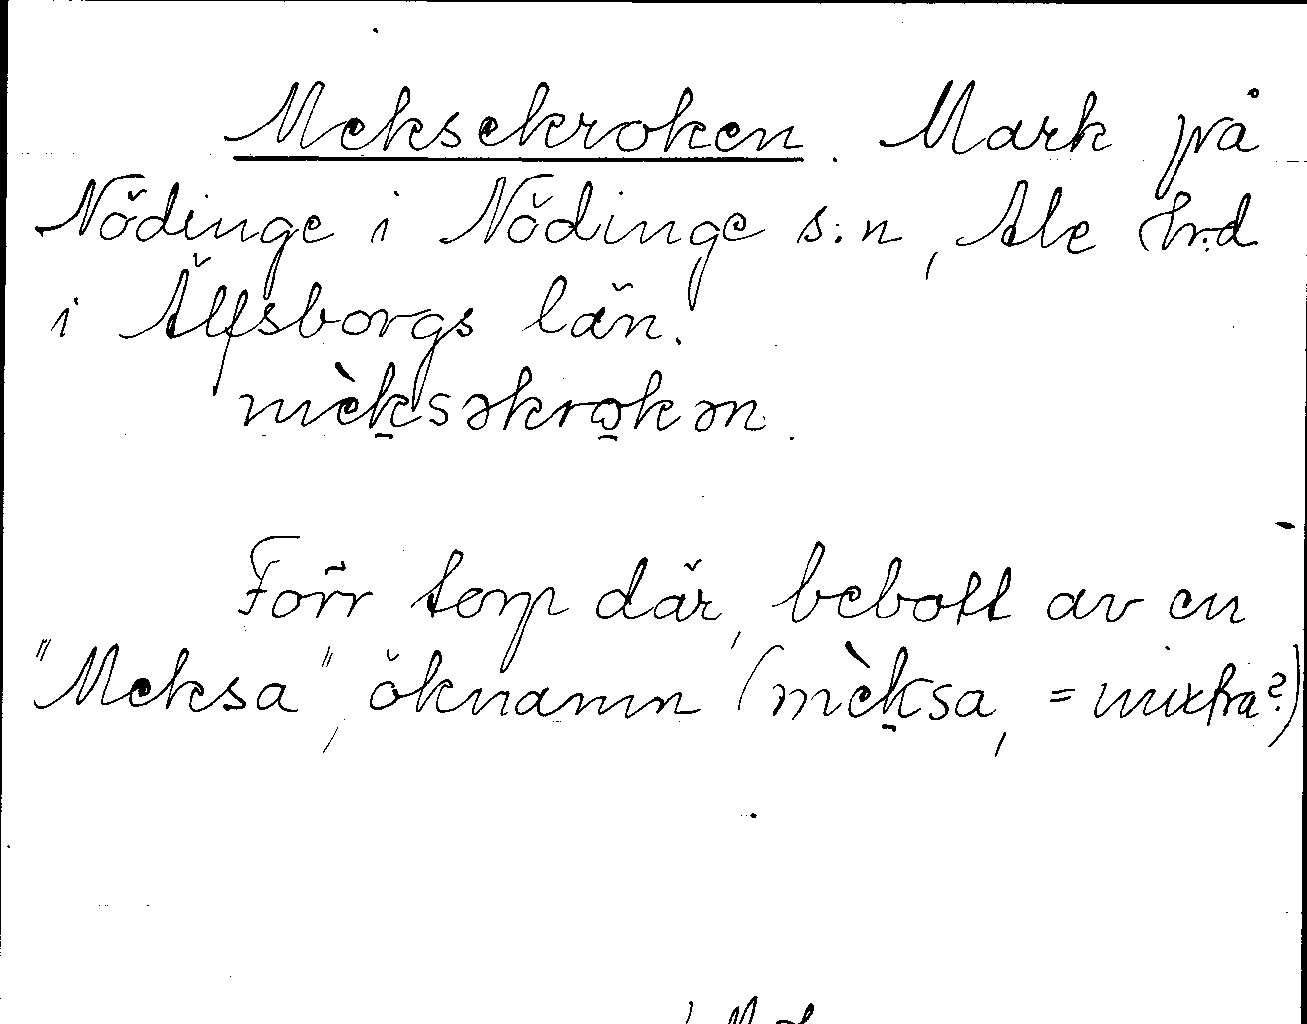 Meksekroken. Mark på
Nödinge i Nödinge s:n, Ale hrd
i Älfsborgs län.
mèk̠səkro̠kən.
Förr torp där, bebott av en
"Meksa", öknamn (mèk̠sa, = mixtra?)